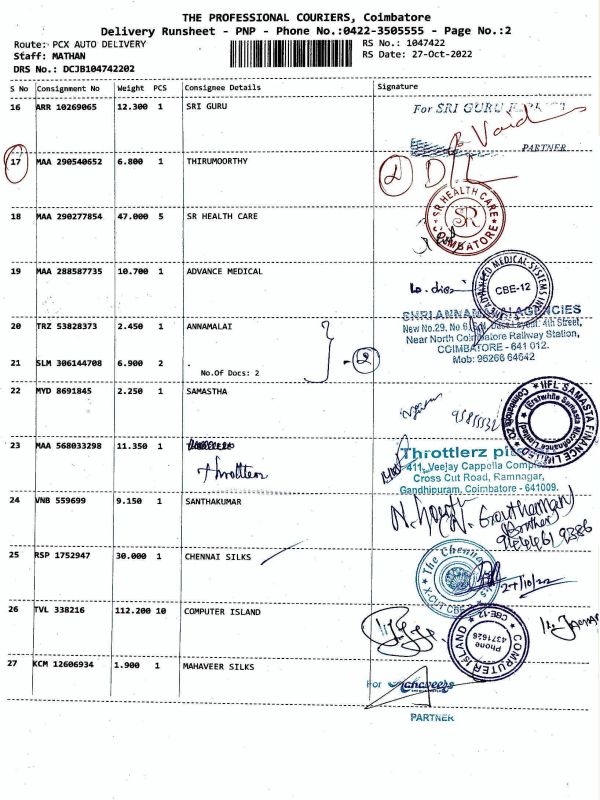 THE PROFESSIONAL COURIERS, Coimbatore
Delivery Runsheet - PNP - Phone No.:0422-3505555 - Page No.:2
Route: PCX AUTO DELIVERY
RS No.: 1047422
Staff: MATHAN
RS Date: 27-Oct-2022
DRS No.: DCJB104742202
S No Consignment No Weight PCS Consignee Details Signature
16 ARR 10269065 12.300 1 SRI GURU
For SRI GURU
PARTNER
17 MAA 290540652 6.800 1 THIRUMOORTHY
2 D/L
18 MAA 290277854 47.000 5 SR HEALTH CARE
SR HEALTH CARE
SR
COIMBATORE
19 MAA 288587735 10.700 1 ADVANCE MEDICAL
ADVANCED MEDICAL SYSTEMS
CBE-12
20 TRZ 53828373 2.450 1 ANNAMALAI
AGENCIES
New No.29, 4th Street,
Near North Coimbatore Railway Station,
COIMBATORE - 641 012.
Mob: 96266 64642
21 SLM 306144708 6.900 2 .
No.Of Docs: 2
2
22 MYD 8691845 2.250 1 SAMASTHA
IIFL SAMASTA FINANCE LIMITED
(Erstwhile Samasta Microfinance Limited)
23 MAA 568033298 11.350 1
Throttlerz
Throttlerz
411, Veejay Cappella Complex
Cross Cut Road, Ramnagar,
Gandhipuram, Coimbatore - 641009.
24 VNB 559699 9.150 1 SANTHAKUMAR
N. Gowthaman
(Brother)
25 RSP 1752947 30.000 1 CHENNAI SILKS
The Chennai
27/10/22
26 TVL 338216 112.200 10 COMPUTER ISLAND
COMPUTER ISLAND
CBE-12
Phone
4371626
27 KCM 12606934 1.900 1 MAHAVEER SILKS
For Mahaveers
PARTNER